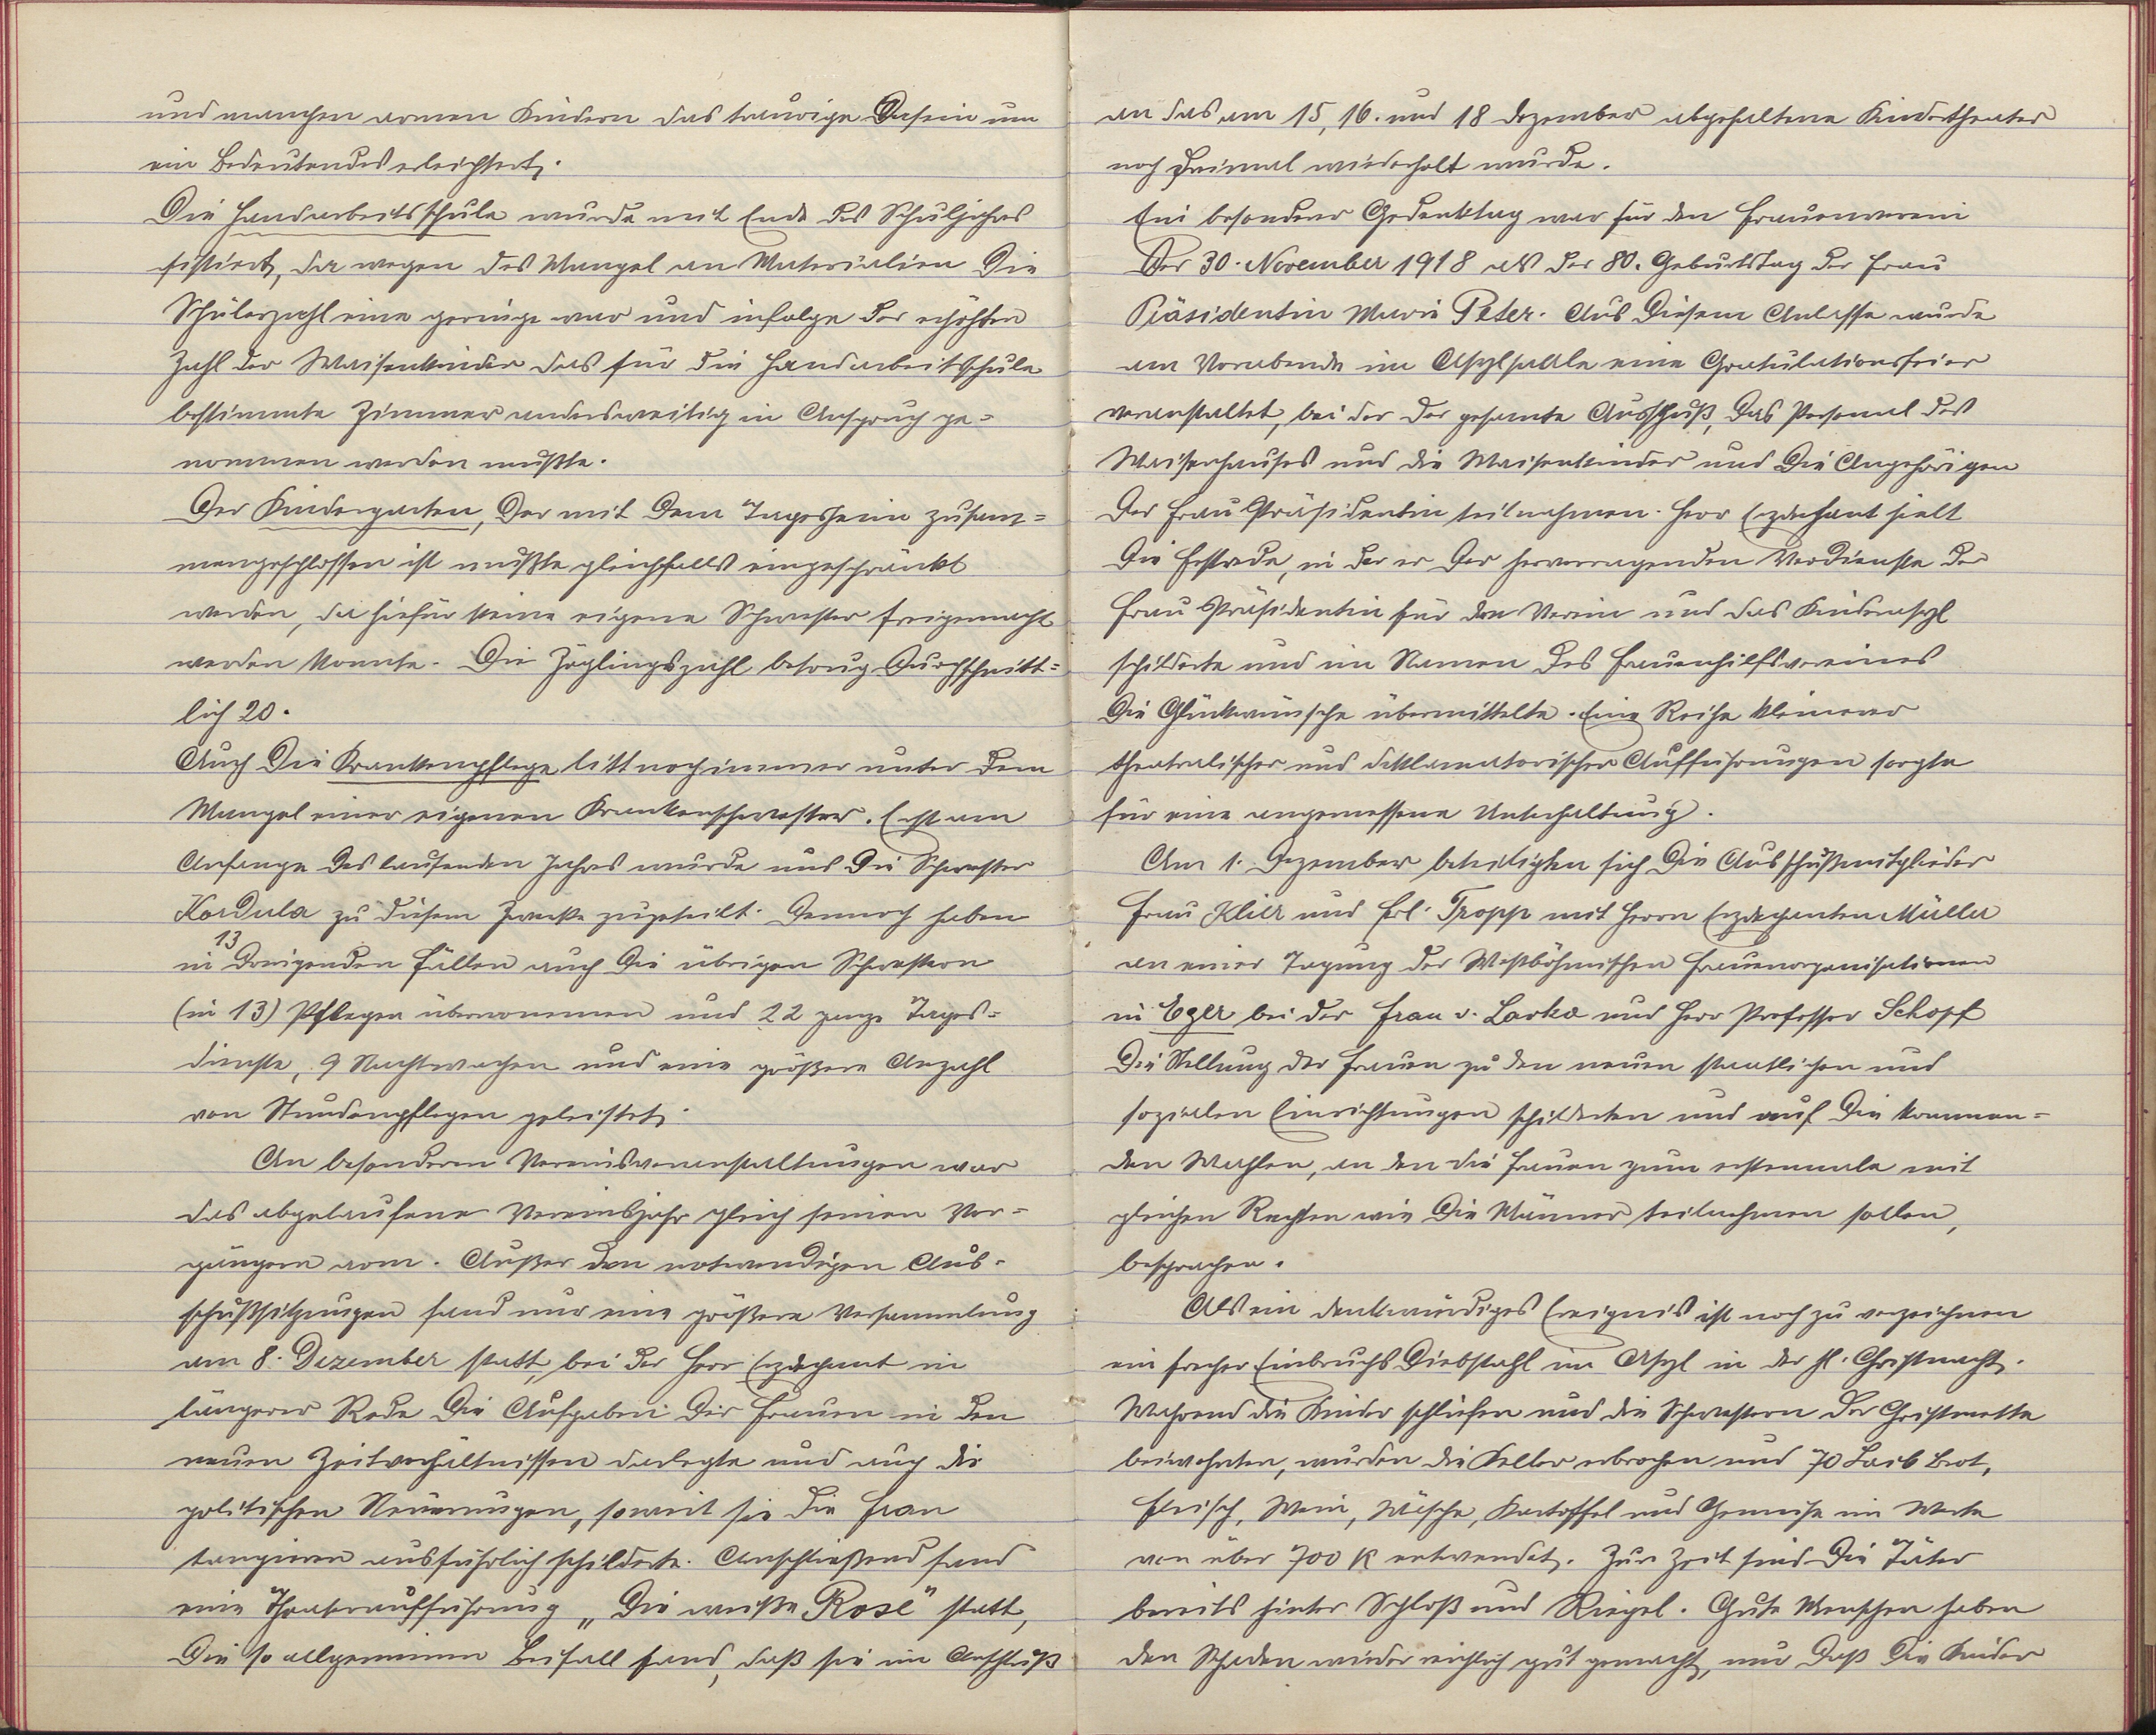 und manchen armen Kindern das traurige Dasein um
ein Bedeutendes erleichtert.
Die Handarbeitsschule wurde mit Ende des Schuljahres
sistiert, da wegen des Mangel an Materialien die
Schülerzahl eine geringe war und infolge der erhöhten
Zahl der Waisenkinder das für die Handarbeitsschule
bestimmte Zimmer anderweitig in Anspruch ge-
nommen werden mußte.
Der Kindergarten, der mit dem Tagesheim zusam-
mengeschlossen ist mußte gleichfalls eingeschränkt
werden, da hiefür keine eigene Schwester freigemacht
werden konnte. Die Zöglingszahl betrug durchschnitt-
lich 20.
Auch die Krankenpflege litt noch immer unter dem
Mangel einer eigenen Krankenschwester. Erst am
Anfange des laufenden Jahres wurde uns die Schwester
Kordula zu diesem Zwecke zugeteilt. Dennoch haben
13
in dringenden Fällen auch die übrigen Schwestern
(in 13) Pflegen übernommen und 22 ganze Tages-
dienste, 9 Nachtwachen und eine größere Anzahl
von Stundenpflegen geleistet.
An besonderen Vereinsveranstaltungen war
das abgelaufene Vereinsjahr gleich seinen Vor-
gängern arm. Außer den notwendigen Aus-
schußsitzungen fand nur eine größere Versammlung
am 8. Dezember statt, bei der Herr Erzdechant in
längerer Rede die Aufgaben der Frauen in den
neuen Zeitverhältnissen darlegte und auch die
politischen Neuerungen, soweit sie die Frau
tangieren ausführlich schilderte. Anschließend fand
eine Theateraufführung „Die weiße Rose" statt,
die so allgemeinen Beifall fand, daß sie im Anschluß
an das am 15, 16. und 18 Dezember abgehaltene Kindertheater
noch dreimal wiederholt wurde.
Ein besonderer Gedenktag war für den Frauenverein
der 30. November 1918 als der 80. Geburtstag der Frau
Präsidentin Marie Peter. Aus diesem Anlasse wurde
am Vorabende im Asylsaale eine Gratulationsfeier
veranstaltet, bei der der gesamte Ausschuß, das Personal des
Waisenhauses und die Waisenkinder und die Angehörigen
der Frau Präsidentin teilnahmen. Herr Erzdechant hielt
die Festrede, in der er der hervorragenden Verdienste der
Frau Präsidentin für den Verein und das Kinderasyl
schilderte und im Namen des Frauenhilfsvereines
die Glückwünsche übermittelte. Eine Reihe kleinerer
theatralischer und deklamatorischer Aufführungen sorgte
für eine angemessene Unterhaltung.
Am 1. Dezember beteiligten sich die Ausschußmitglieder
Frau Klier und Frl. Tropp mit Herrn Erzdechanten Müller
an einer Tagung der Westböhmischen Frauenorganisationen
in Eger bei der Frau v. Larka und Herr Professor Schopf
die Stellung der Frauen zu den neuen staatlichen und
sozialen Einrichtungen schilderten und auf die kommen-
den Wahlen, an den die Frauen zum erstenmale mit
gleichen Rechten wie die Männer teilnehmen sollen,
besprachen.
Als ein denkwürdiges Ereignis ist noch zu verzeichnen
ein frecher Einbruchs Diebstahl im Asyl in der hl. Christnacht.
Während die Kinder schliefen und die Schwestern der Christmette
beiwohnten, wurden die Keller erbrochen und 70 Laib Brot,
Fleisch, Wein, Wäsche, Kartoffel und Gemüse im Werte
von über 700 K entwendet. Zur Zeit sind die Täter
bereits hinter Schloß und Riegel. Gute Menschen haben
den Schaden wieder reichlich gut gemacht, nur daß die Kinder